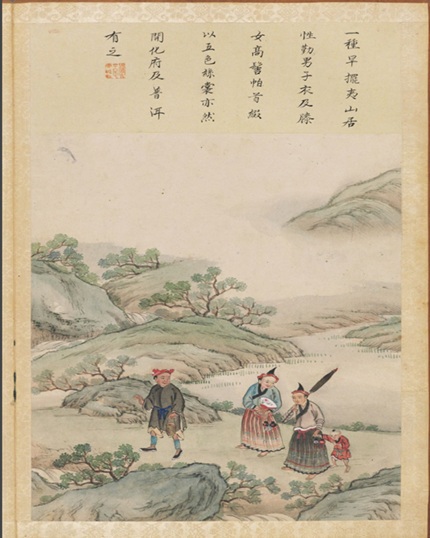 一種旱擺夷山居
性勤男子衣及膝
女高髻帕首綴
以五色絲裳亦然
開化府及普洱
有之